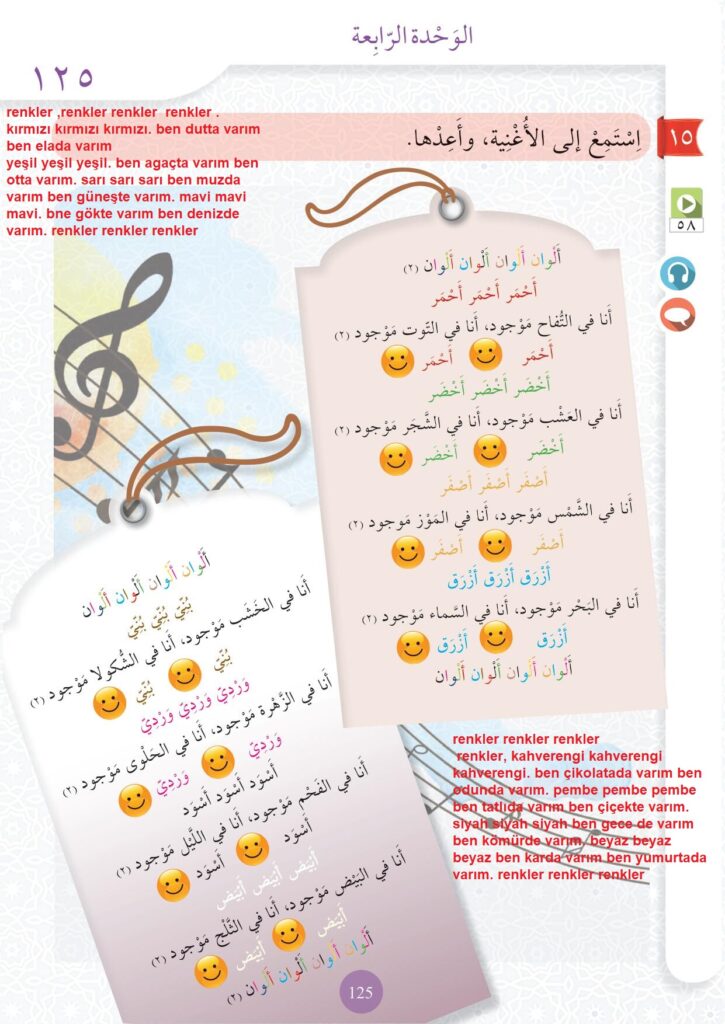 الوَحْدة الرّابِعة
١٢٥
renkler ,renkler renkler  renkler .
kırmızı kırmızı kırmızı. ben dutta varım
ben elada varım
yeşil yeşil yeşil. ben agaçta varım ben
otta varım. sarı sarı sarı ben muzda
varım ben güneşte varım. mavi mavi
mavi. bne gökte varım ben denizde
varım. renkler renkler renkler
١٥
اِسْتَمِعْ إلى الأُغْنِية، وأَعِدْها.
٥٨
أَلْوان أَلْوان أَلْوان أَلْوان (٢)
أَحْمَر أَحْمَر أَحْمَر
أَنا في التُّفاح مَوْجود، أَنا في التّوت مَوْجود (٢)
أَحْمَر أَحْمَر
أَخْضَر أَخْضَر أَخْضَر
أَنا في العَشْب مَوْجود، أَنا في الشَّجَر مَوْجود (٢)
أَخْضَر أَخْضَر
أَصْفَر أَصْفَر أَصْفَر
أَنا في الشَّمْس مَوْجود، أَنا في المَوْز مَوجود (٢)
أَصْفَر أَصْفَر
أَزْرَق أَزْرَق أَزْرَق
أَنا في البَحْر مَوْجود، أَنا في السَّماء مَوْجود (٢)
أَزْرَق أَزْرَق
أَلْوان أَلْوان أَلْوان أَلْوان
أَلْوان أَلْوان أَلْوان أَلْوان
بُنّيّ بُنّيّ بُنّيّ
أَنا في الخَشَب مَوْجود، أَنا في الشُّكولا مَوْجود (٢)
بُنّيّ بُنّيّ
وَرْديّ وَرْديّ وَرْديّ
أَنا في الزَّهْرة مَوْجود، أَنا في الحَلْوى مَوْجود (٢)
وَرْديّ وَرْديّ
أَسْوَد أَسْوَد أَسْوَد
أَنا في الفَحْم مَوْجود، أَنا في اللَّيْل مَوْجود (٢)
أَسْوَد أَسْوَد
أَبْيَض أَبْيَض أَبْيَض
أَنا في البَيْض مَوْجود، أَنا في الثَّلْج مَوْجود (٢)
أَبْيَض أَبْيَض
أَلْوان أَلْوان أَلْوان أَلْوان (٢)
renkler renkler renkler
renkler, kahverengi kahverengi
kahverengi. ben çikolatada varım ben
odunda varım. pembe pembe pembe
ben tatlıda varım ben çiçekte varım.
siyah siyah siyah ben gece de varım
ben kömürde varım. beyaz beyaz
beyaz ben karda varım ben yumurtada
varım. renkler renkler renkler
125